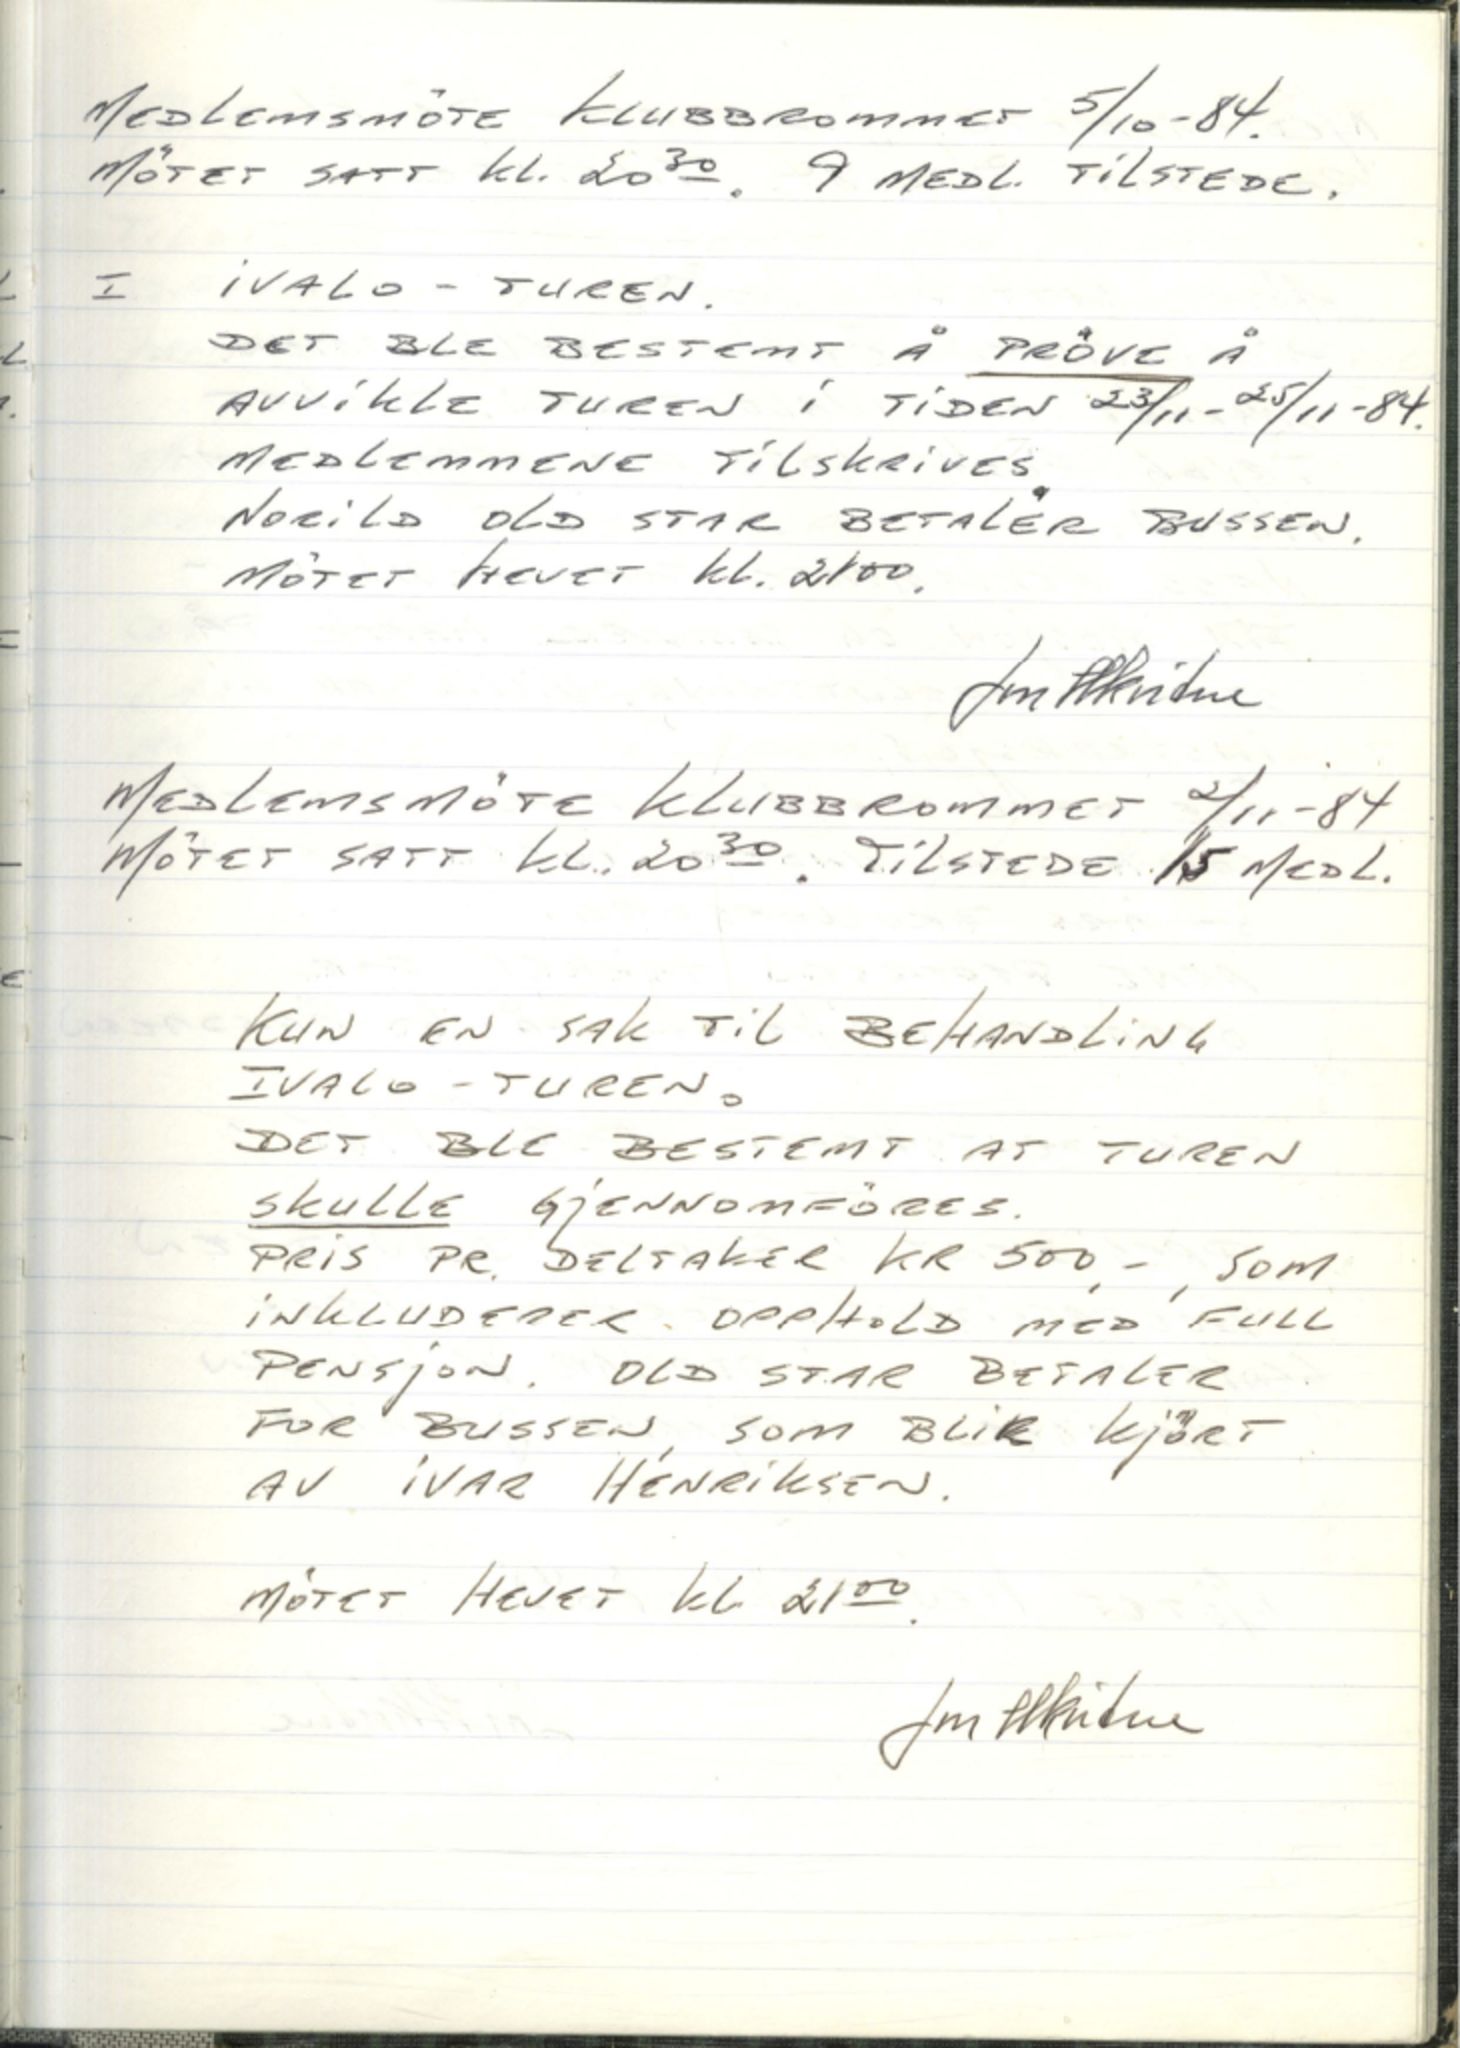 MEDLEMSMÖTE KLUBBROMMET 5/10-84.
MÖTET SATT KL. 20 30. 9 MEDL. TILSTEDE.
I IVALO-TUREN.
DET BLE BESTEMT Å PRÖVE Å
AVVIKLE TUREN I TIDEN 23/11-25/11-84.
MEDLEMMENE TILSKRIVES.
NORILD OLD STAR BETALER BUSSEN.
MÖTET HEVET KL. 2100.
MEDLEMSMÖTE KLUBBROMMET 2/11-84
MÖTET SATT KL. 20 30. TILSTEDE 15 MEDL.
KUN EN SAK TIL BEHANDLING
IVALO-TUREN.
DET BLE BESTEMT AT TUREN
SKULLE GJENNOMFÖRES.
PRIS PR. DELTAKER KR 500,-, SOM
INKLUDERER OPPHOLD MED FULL
PENSJON. OLD STAR BETALER
FOR BUSSEN, SOM BLIR KJÖRT
AV IVAR HENRIKSEN.
MÖTET HEVET KL. 21 00.